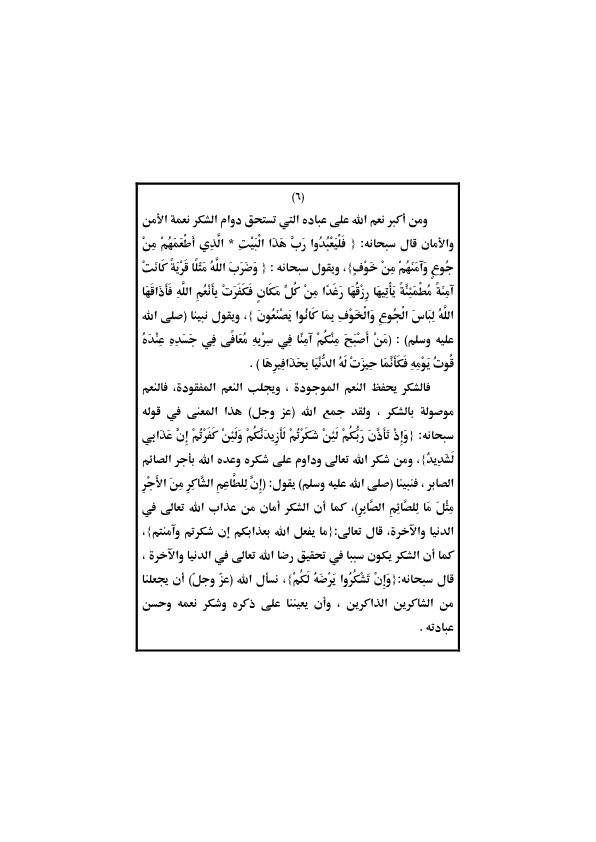 (٦)
ومن أكبر نعم الله على عباده التي تستحق دوام الشكر نعمة الأمن
والأمان قال سبحانه: { فَلْيَعْبُدُوا رَبَّ هَذَا الْبَيْتِ * الَّذِي أَطْعَمَهُمْ مِنْ
جُوعٍ وَآمَنَهُمْ مِنْ خَوْفٍ}، ويقول سبحانه : { وَضَرَبَ اللَّهُ مَثَلًا قَرْيَةً كَانَتْ
آمِنَةً مُطْمَئِنَّةً يَأْتِيهَا رِزْقُهَا رَغَدًا مِنْ كُلِّ مَكَانٍ فَكَفَرَتْ بِأَنْعُمِ اللَّهِ فَأَذَاقَهَا
اللَّهُ لِبَاسَ الْجُوعِ وَالْخَوْفِ بِمَا كَانُوا يَصْنَعُونَ }، ويقول نبينا (صلى الله
عليه وسلم) : (مَنْ أَصْبَحَ مِنْكُمْ آمِنًا فِي سِرْبِهِ مُعَافًى فِي جَسَدِهِ عِنْدَهُ
قُوتُ يَوْمِهِ فَكَأَنَّمَا حِيزَتْ لَهُ الدُّنْيَا بِحَذَافِيرِهَا ) .
فالشكر يحفظ النعم الموجودة ، ويجلب النعم المفقودة، فالنعم
موصولة بالشكر ، ولقد جمع الله (عز وجل) هذا المعنى في قوله
سبحانه: {وَإِذْ تَأَذَّنَ رَبُّكُمْ لَئِنْ شَكَرْتُمْ لَأَزِيدَنَّكُمْ وَلَئِنْ كَفَرْتُمْ إِنَّ عَذَابِي
لَشَدِيدٌ}، ومن شكر الله تعالى وداوم على شكره وعده الله بأجر الصائم
الصابر ، فنبينا (صلى الله عليه وسلم) يقول: (إِنَّ لِلطَّاعِمِ الشَّاكِرِ مِنَ الأَجْرِ
مِثْلَ مَا لِلصَّائِمِ الصَّابِرِ)، كما أن الشكر أمان من عذاب الله تعالى في
الدنيا والآخرة، قال تعالى:{ما يفعل الله بعذابكم إن شكرتم وآمنتم}،
كما أن الشكر يكون سببا في تحقيق رضا الله تعالى في الدنيا والآخرة ،
قال سبحانه:{وَإِنْ تَشْكُرُوا يَرْضَهُ لَكُمْ}، نسأل الله (عزّ وجلّ) أن يجعلنا
من الشاكرين الذاكرين ، وأن يعيننا على ذكره وشكر نعمه وحسن
عبادته .